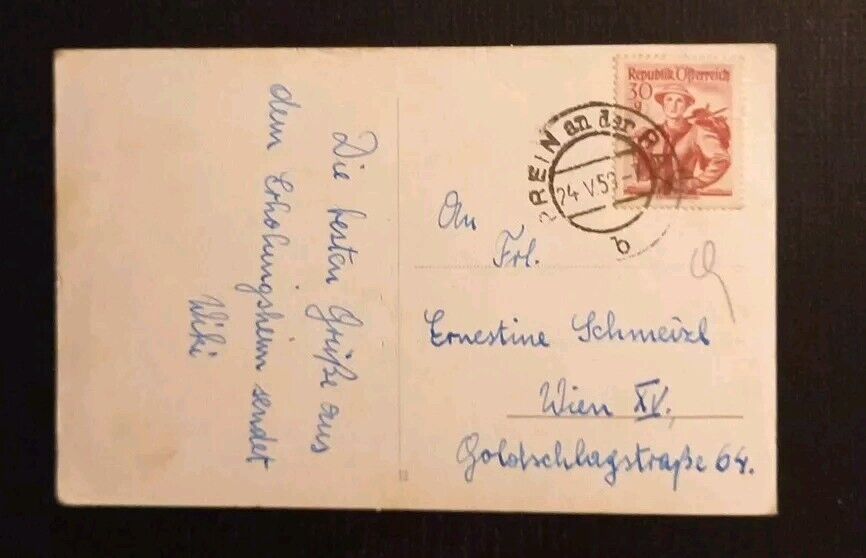 Die besten Grüße aus
dem Erholungsheim sendet
Wiki
Republik Österreich
30
g
PREIN an der
24.V.59
b
An
Frl.
Ernestine Schmeizl
Wien XV.,
Goldschlagstraße 64.